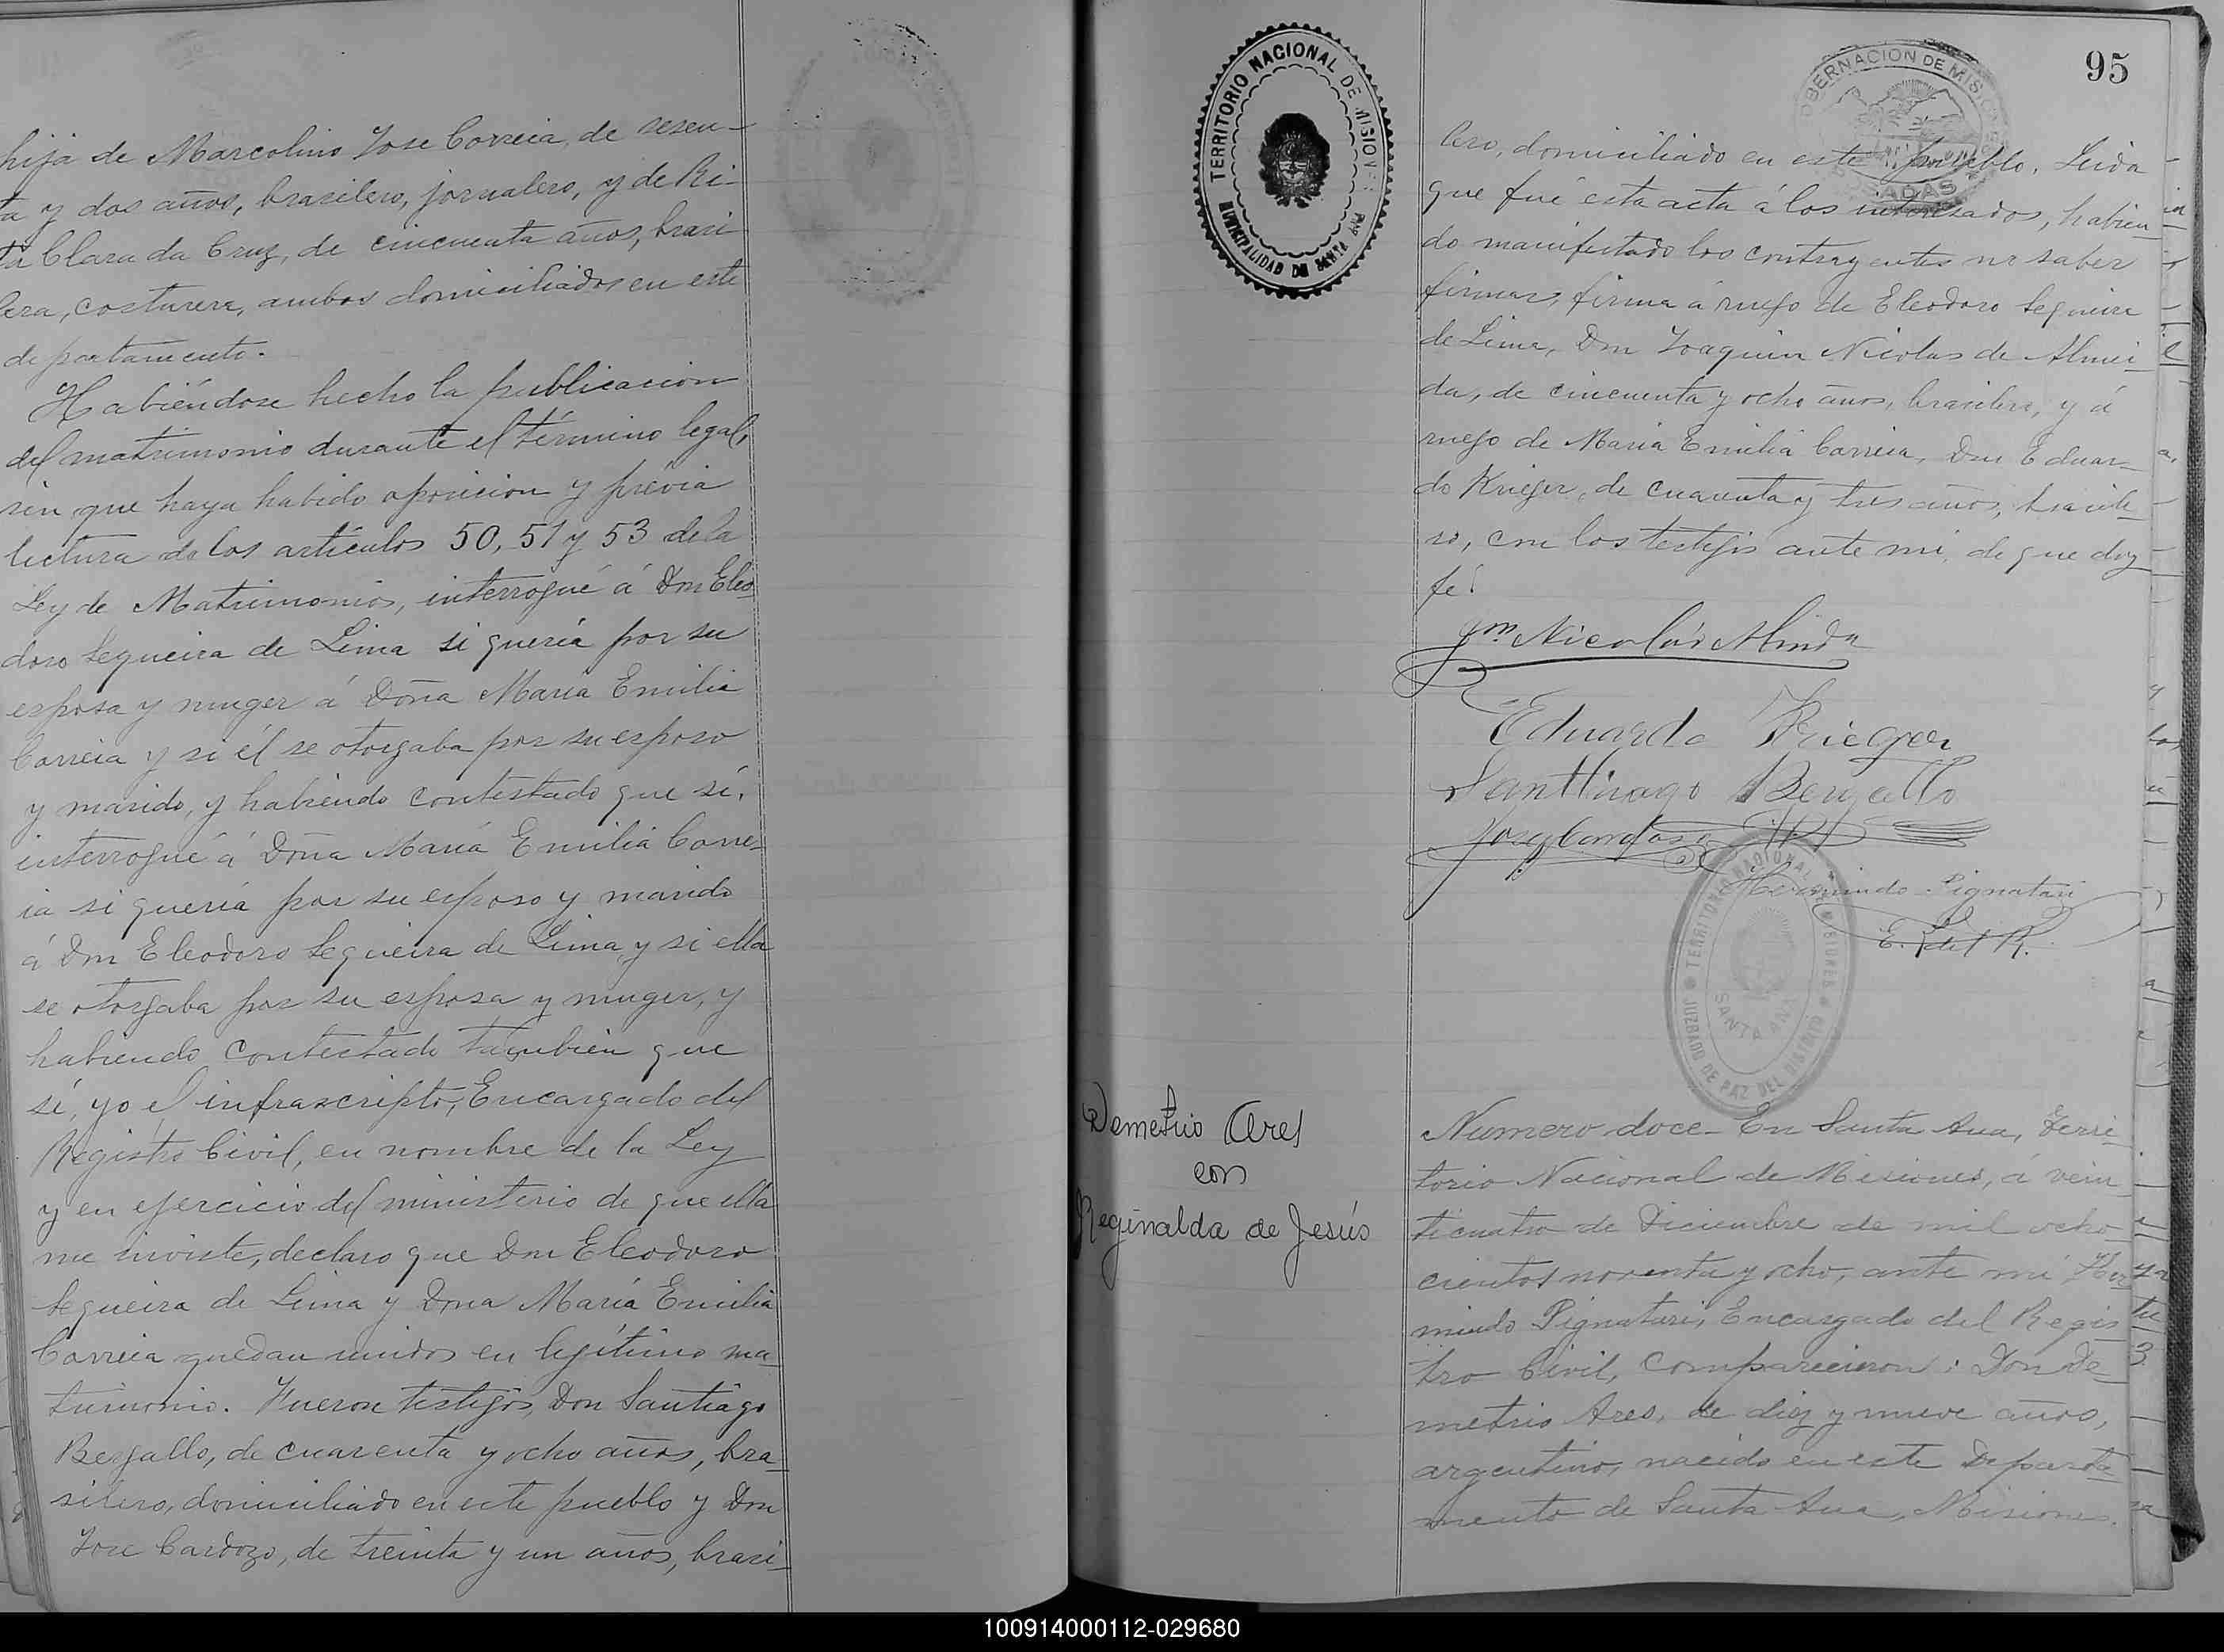 hija de Marcolino Jose Correia, de sesen-
ta y dos años, brasilero, jornalero, y de Ri-
ta Clara da Cruz, de cincuenta años, brasi
lera, costurera, ambos domiciliados en este
departamento.
Habiéndose hecho la publicacion
del matrimonio durante el término legal,
sin que haya habido oposicion y prévia
lectura de los artículos 50, 51 y 53 de la
Ley de Matrimonios, interrogué á Don Eleo
doro Sequeira de Lima si quería por su
esposa y muger á Doña María Emilia
Correia y si él se otorgaba por su esposo
y marido, y habiendo contestado que sí,
interrogué á Doña María Emilia Corre-
ia si quería por su esposo y marido
á Don Eleodoro Sequeira de Lima y si ella
se otorgaba por su esposa y muger, y
habiendo contestado también que
sí, yo el infrascripto, Encargado del
Registro Civil, en nombre de la Ley
y en ejercicio del ministerio de que ella
me inviste, declaro que Don Eleodoro
Sequeira de Lima y Doña María Emilia
Correia quedan unidos en legítimo ma-
trimonio. Fueron testigos, Don Santiago
Bergallo, de cuarenta y ocho años, bra-
silero, domiciliado en este pueblo y Don
Jose Cardozo, de treinta y un años, brasi-
TERRITORIO NACIONAL DE MISIONES
MUNICIPALIDAD DE SANTA ANA
GOBERNACION DE MISIONES
POSADAS
95
lero, domiciliado en este pueblo. Leida
que fué esta acta á los interesados, habien-
do manifestado los contrayentes no saber
firmar, firma á ruego de Eleodoro Sequeira
de Lima, Don Joaquin Nicolas de Almei-
da, de cincuenta y ocho años, brasilero, y á
ruego de María Emilia Correia, Don Eduar-
do Krieger, de cuarenta y tres años, brasile-
ro, con los testigos ante mí, de que doy
fe.
Jm Nicolás Almida
Eduardo Krieger
Santhiago Bergallo
Jose Cardoso
Hermindo Pignatari
E. del R.
TERRITORIO NACIONAL DE MISIONES
SANTA ANA
JUZGADO DE PAZ DEL DISTRITO
Demetrio Ares
con
Reginalda de Jesús
Numero doce- En Santa Ana, Terri-
torio Nacional de Misiones, á vein
ticuatro de Diciembre de mil ocho
cientos noventa y ocho, ante mi Her
mindo Pignatari, Encargado del Regis
tro Civil, comparecieron: Don De
metrio Ares, de diez y nueve años,
argentino, nacido en este Departa
mento de Santa Ana, Misiones.
100914000112-029680